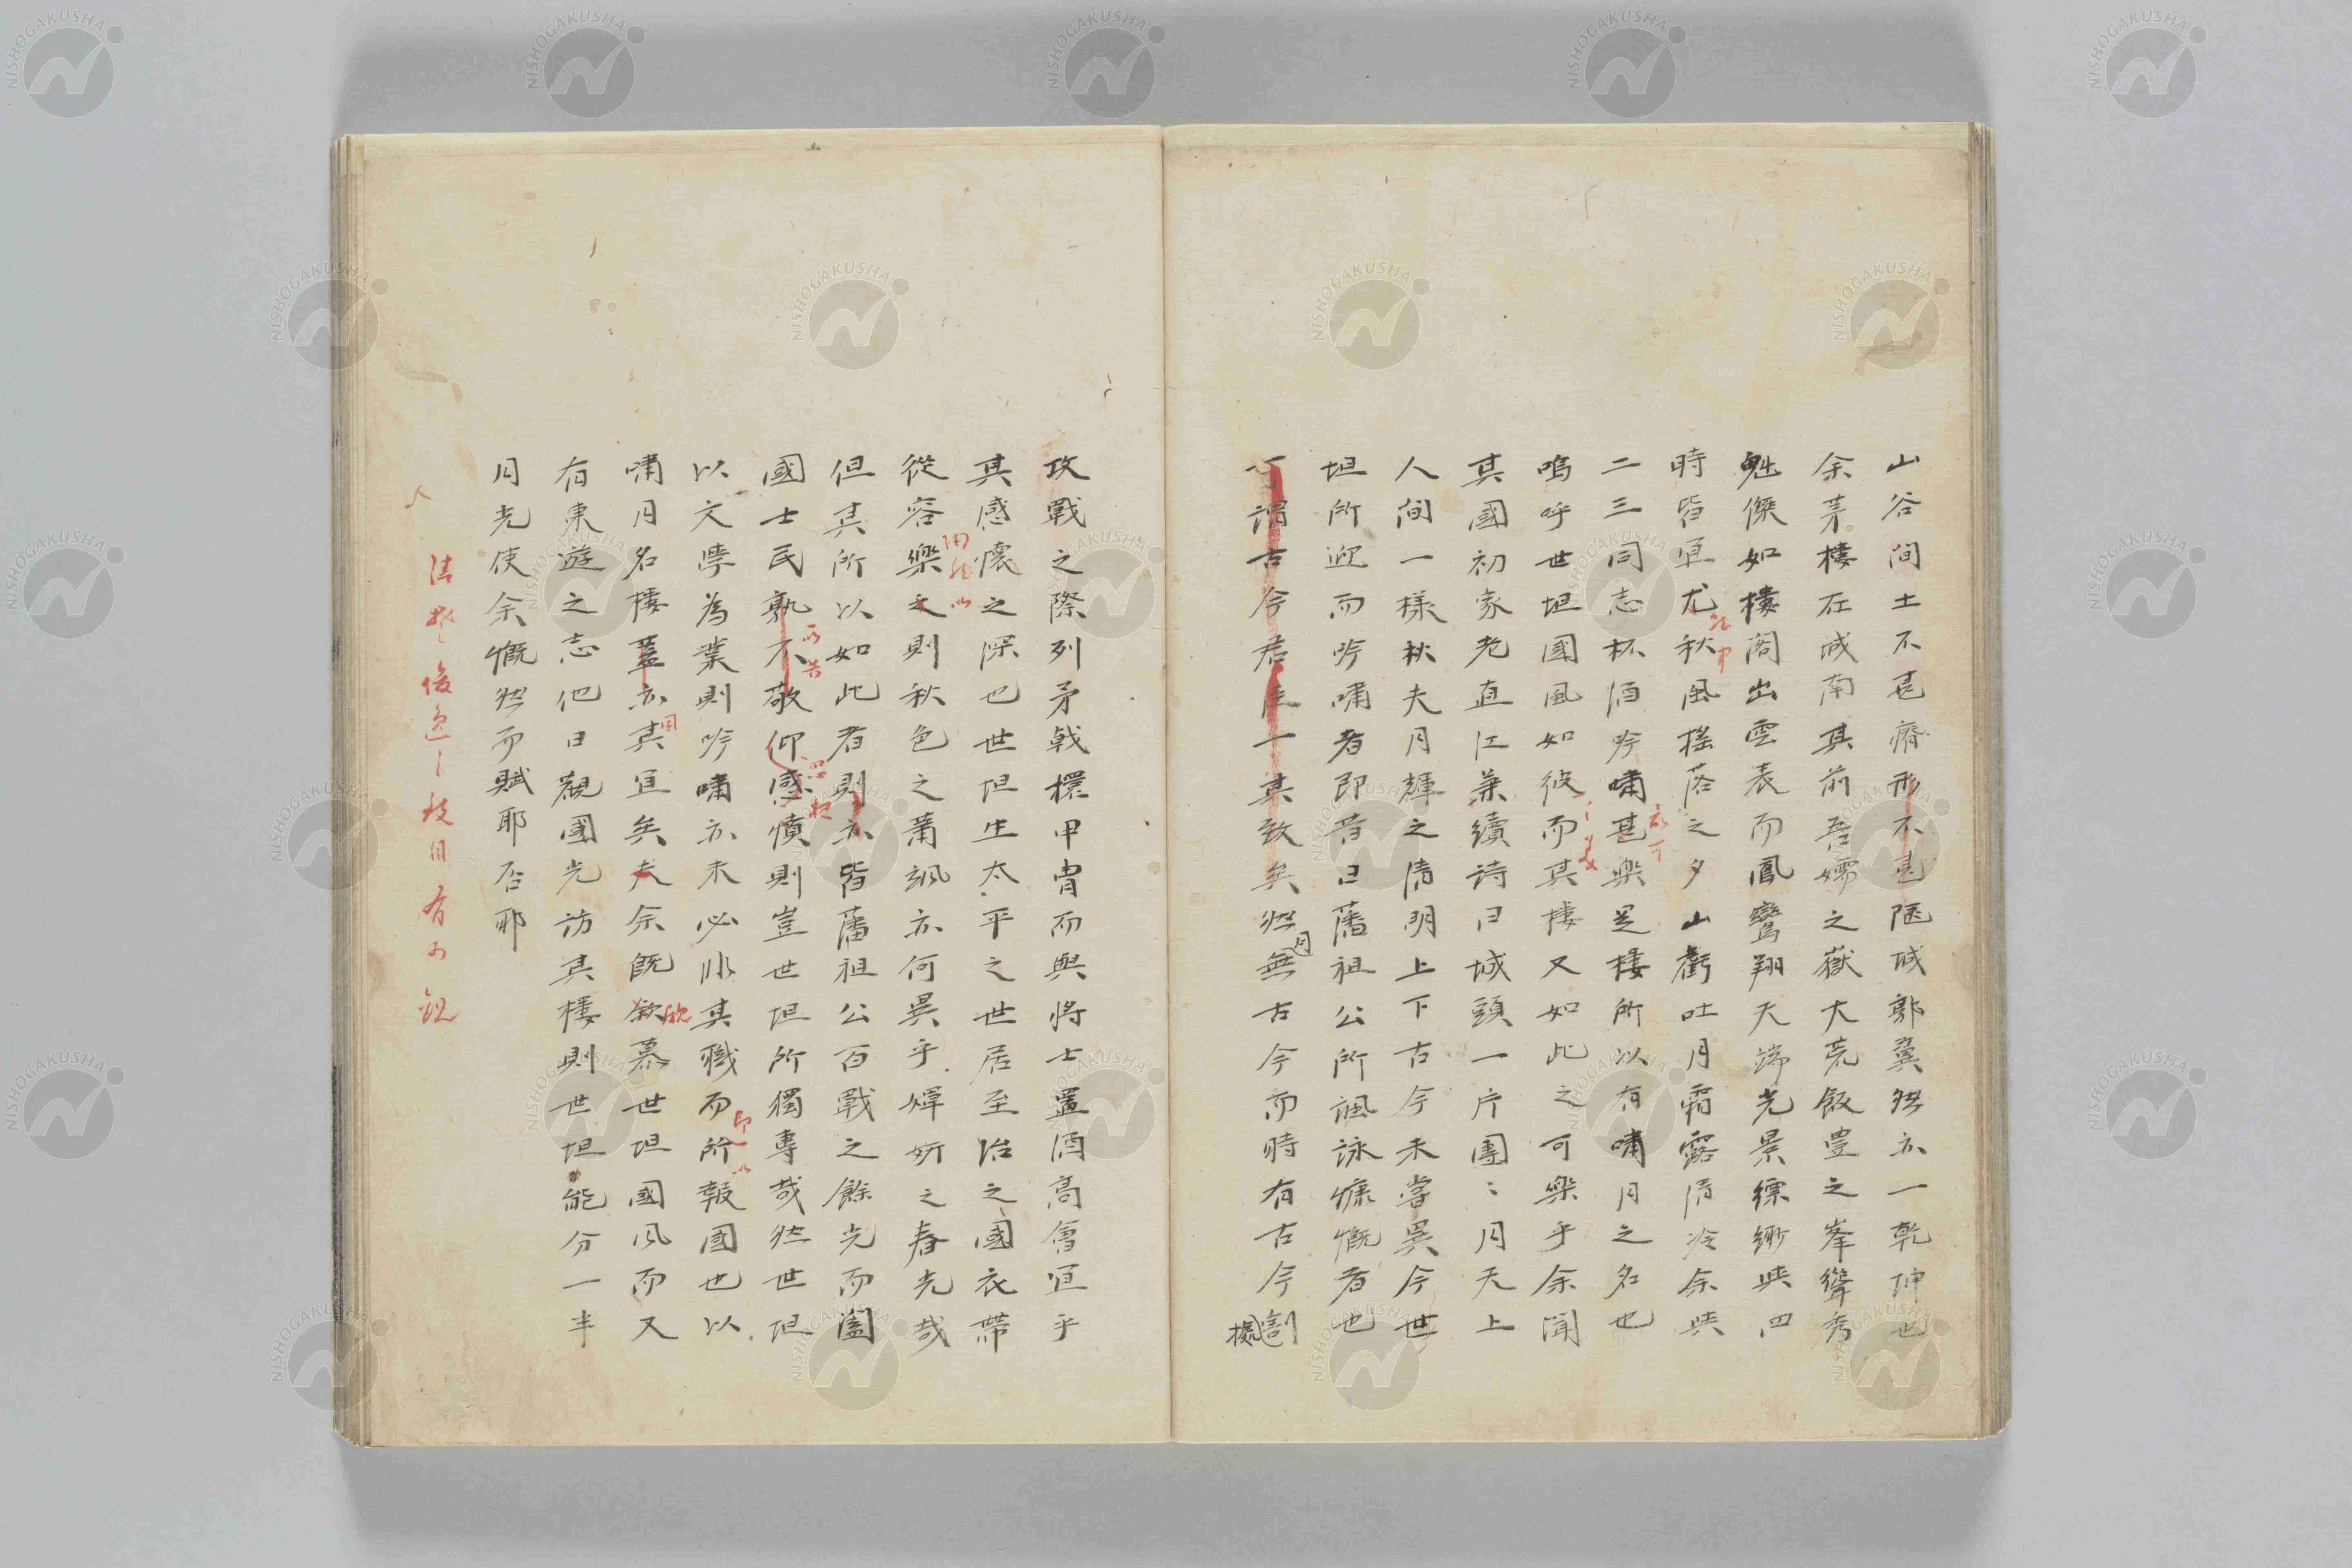 山谷間土不甚瘠形不甚陋城郭翼然亦一乾坤也
余茅樓在城南其前吾嬬之嶽大荒飯豊之峯聳秀
魁傑如樓閣出雲表而鳳鸞翔天端光景縹緲與四
時皆宜尤秋風搖落之夕山虧吐月霜露清冷余與
二三同志杯酒吟嘯甚樂是樓所以有嘯月之名也
嗚呼世坦國風如彼而其樓又如此之可樂乎余聞
其國初家老直江兼續詩曰城頭一片團〻月天上
人間一樣秋夫月輝之清明上下古今未嘗異今世
坦所迎而吟嘯者即昔日藩祖公所諷詠慷慨者也
可謂古今君臣一其致矣然月無古今而時有古今割
據
攻戰之際列矛戟擐甲冑而與將士置酒高會宜乎
其感懷之深也世坦生太平之世居至治之國衣帶
從容樂之則秋色之蕭颯亦何異乎嬋妍之春光哉
但其所以如此者則亦皆藩祖公百戰之餘光而闔
國士民孰不敬仰感憤則豈世坦所獨專哉然世坦
以文學為業則吟嘯亦未必非其職而所報國也以
嘯月名樓蓋亦其宜矣夫余既欲慕世坦國風而又
有東遊之志他日觀國光訪其樓則世坦能分一半
月光使余慨然而賦耶否耶